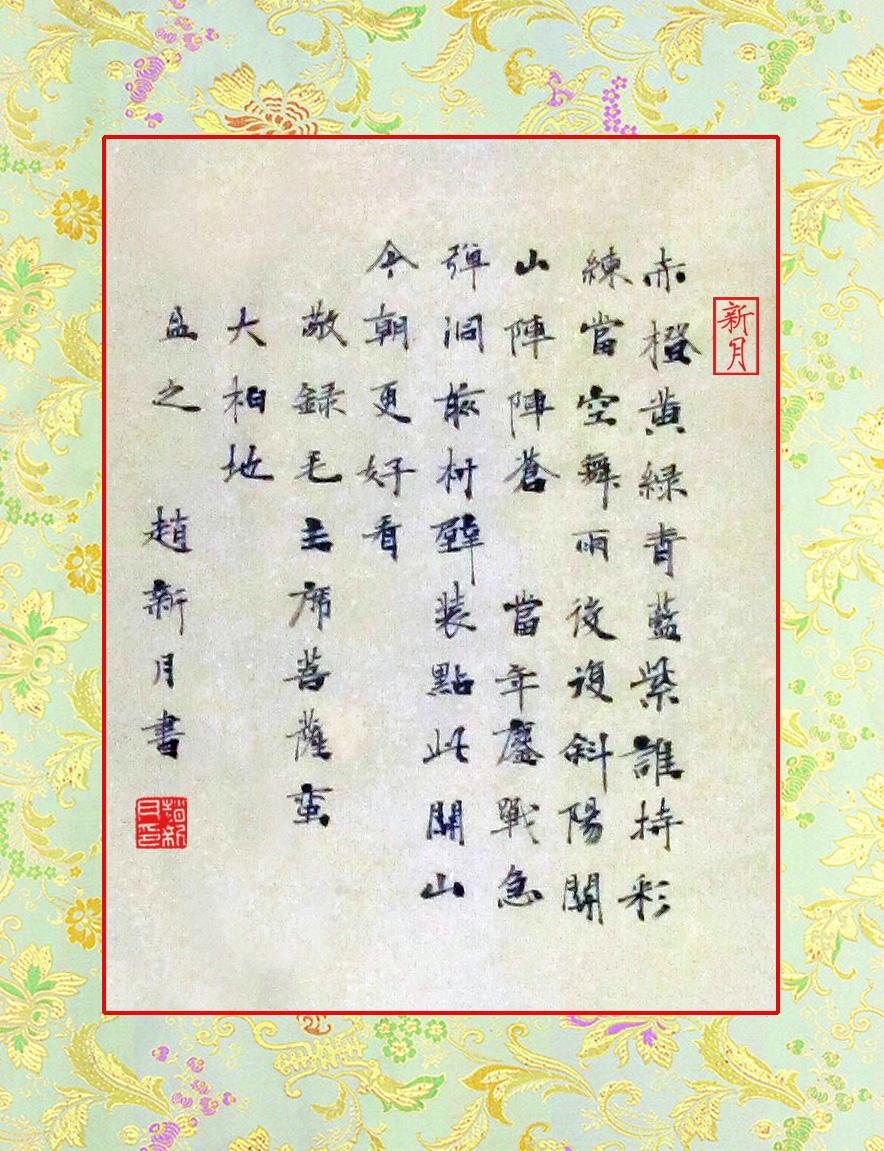 新月
赤橙黄緑青藍紫誰持彩
練當空舞雨後復斜陽關
山陣陣蒼 當年鏖戰急
彈洞前村壁装點此關山
今朝更好看
敬録毛主席菩薩蛮
大柏地
之 趙新月書
趙新月印